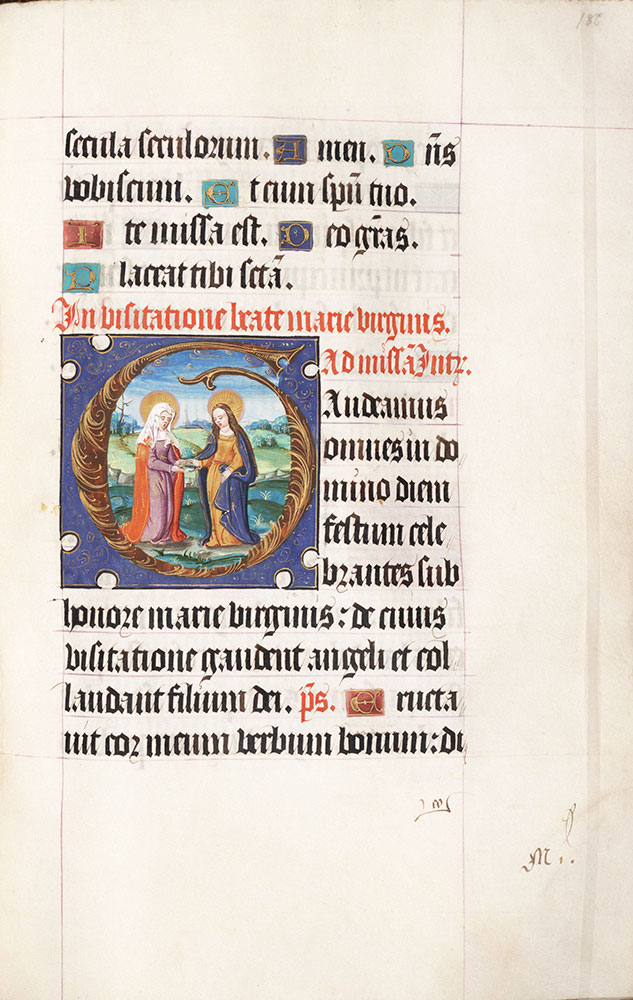 186
secula seculorum. Amen. Dn̄s
vobiscum. Et cum sp̄u tuo.
Ite missa est. Deo gr̄as.
Placeat tibi sctā.
In visitatione beate marie virginis.
Ad missā Intr.
Gaudeamus
omnes in do
mino diem
festum cele
brantes sub
honore marie virginis: de cuius
visitatione gaudent angeli et col
laudant filium dei. p̄s. Eructa
vit cor meum verbum bonum: di
M.